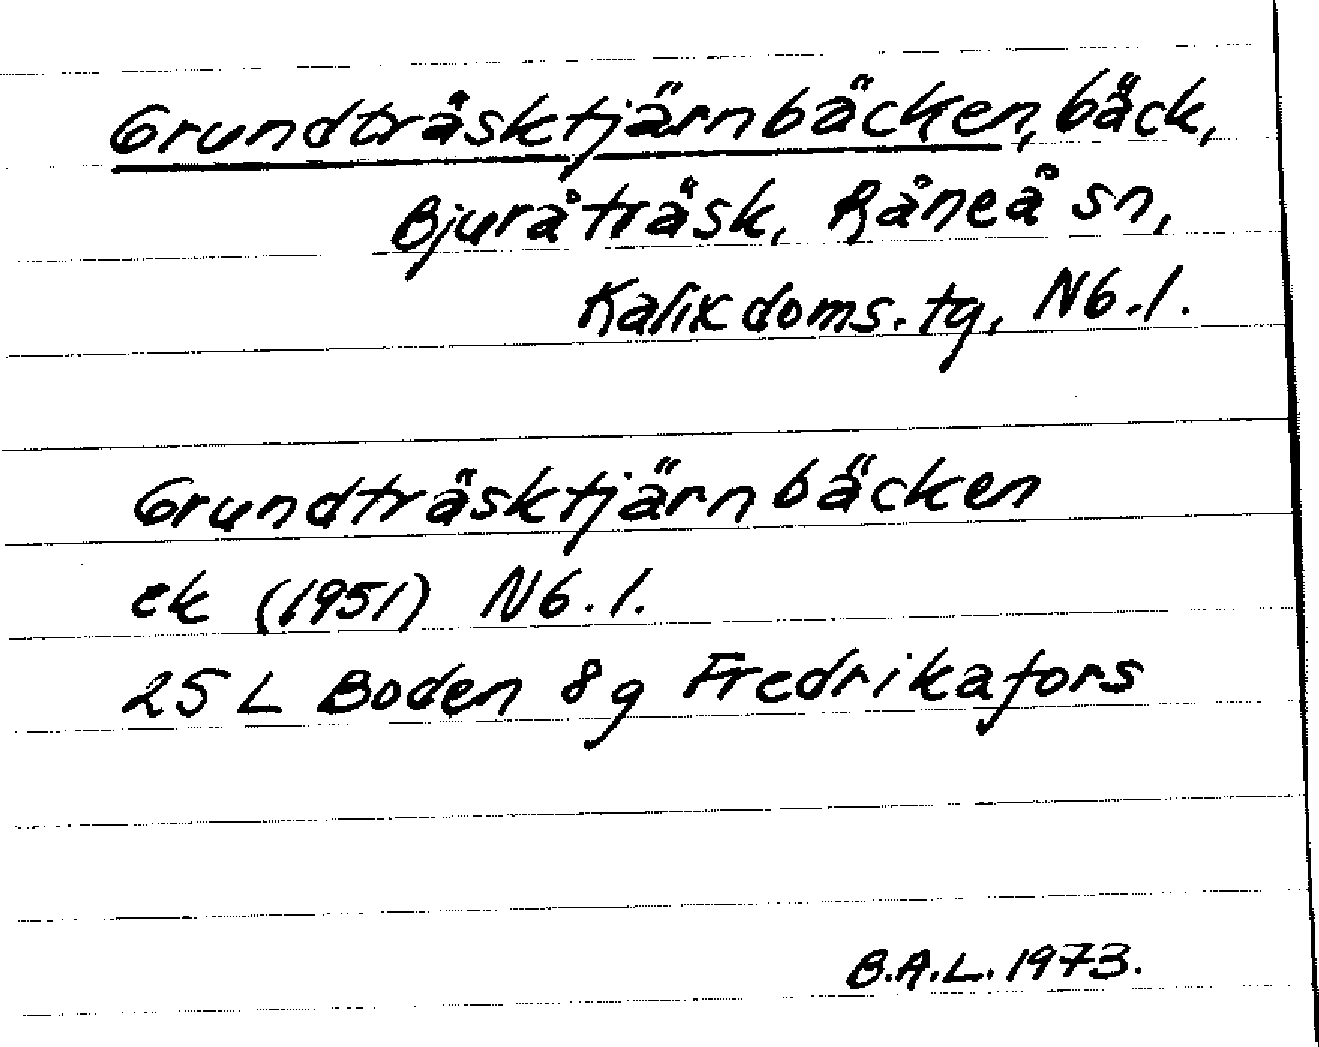 Grundträsktjärnbäcken, bäck,
Bjuråträsk, Råneå sn,
Kalix doms. tg, Nb.l.
Grundträsktjärnbäcken
ek (1951) Nb.l.
25 L Boden 8g Fredrikafors
B.A.L. 1973.